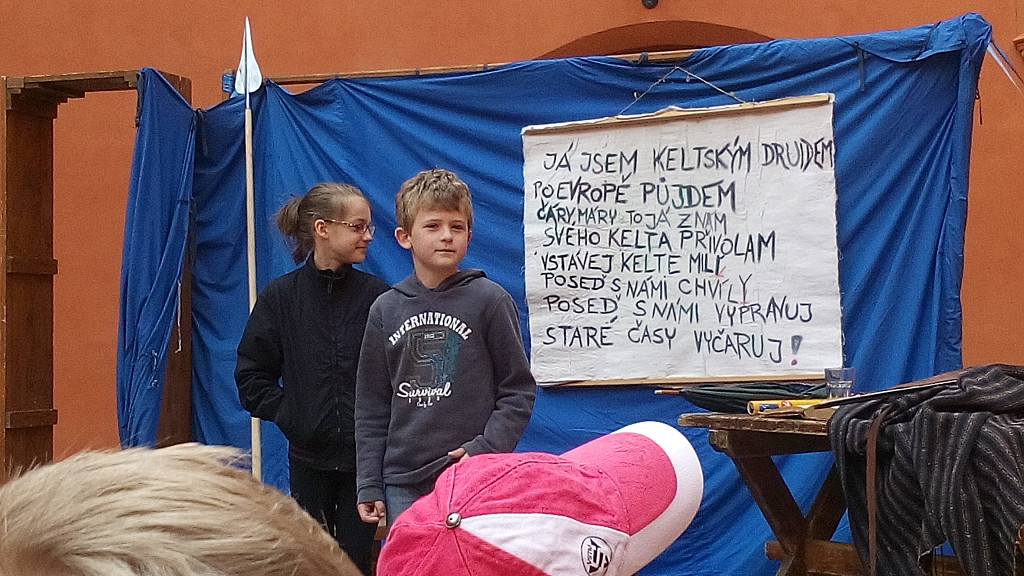 JÁ JSEM KELTSKÝM DRUIDEM
PO EVROPĚ PŮJDEM
ČÁRY MÁRY TO JÁ ZNÁM
SVÉHO KELTA PŘIVOLÁM
VSTÁVEJ KELTE MILÝ
POSEĎ S NÁMI CHVÍLY
POSEĎ S NÁMI VYPRAVUJ
STARÉ ČASY VYČARUJ!
INTERNATIONAL
Survival